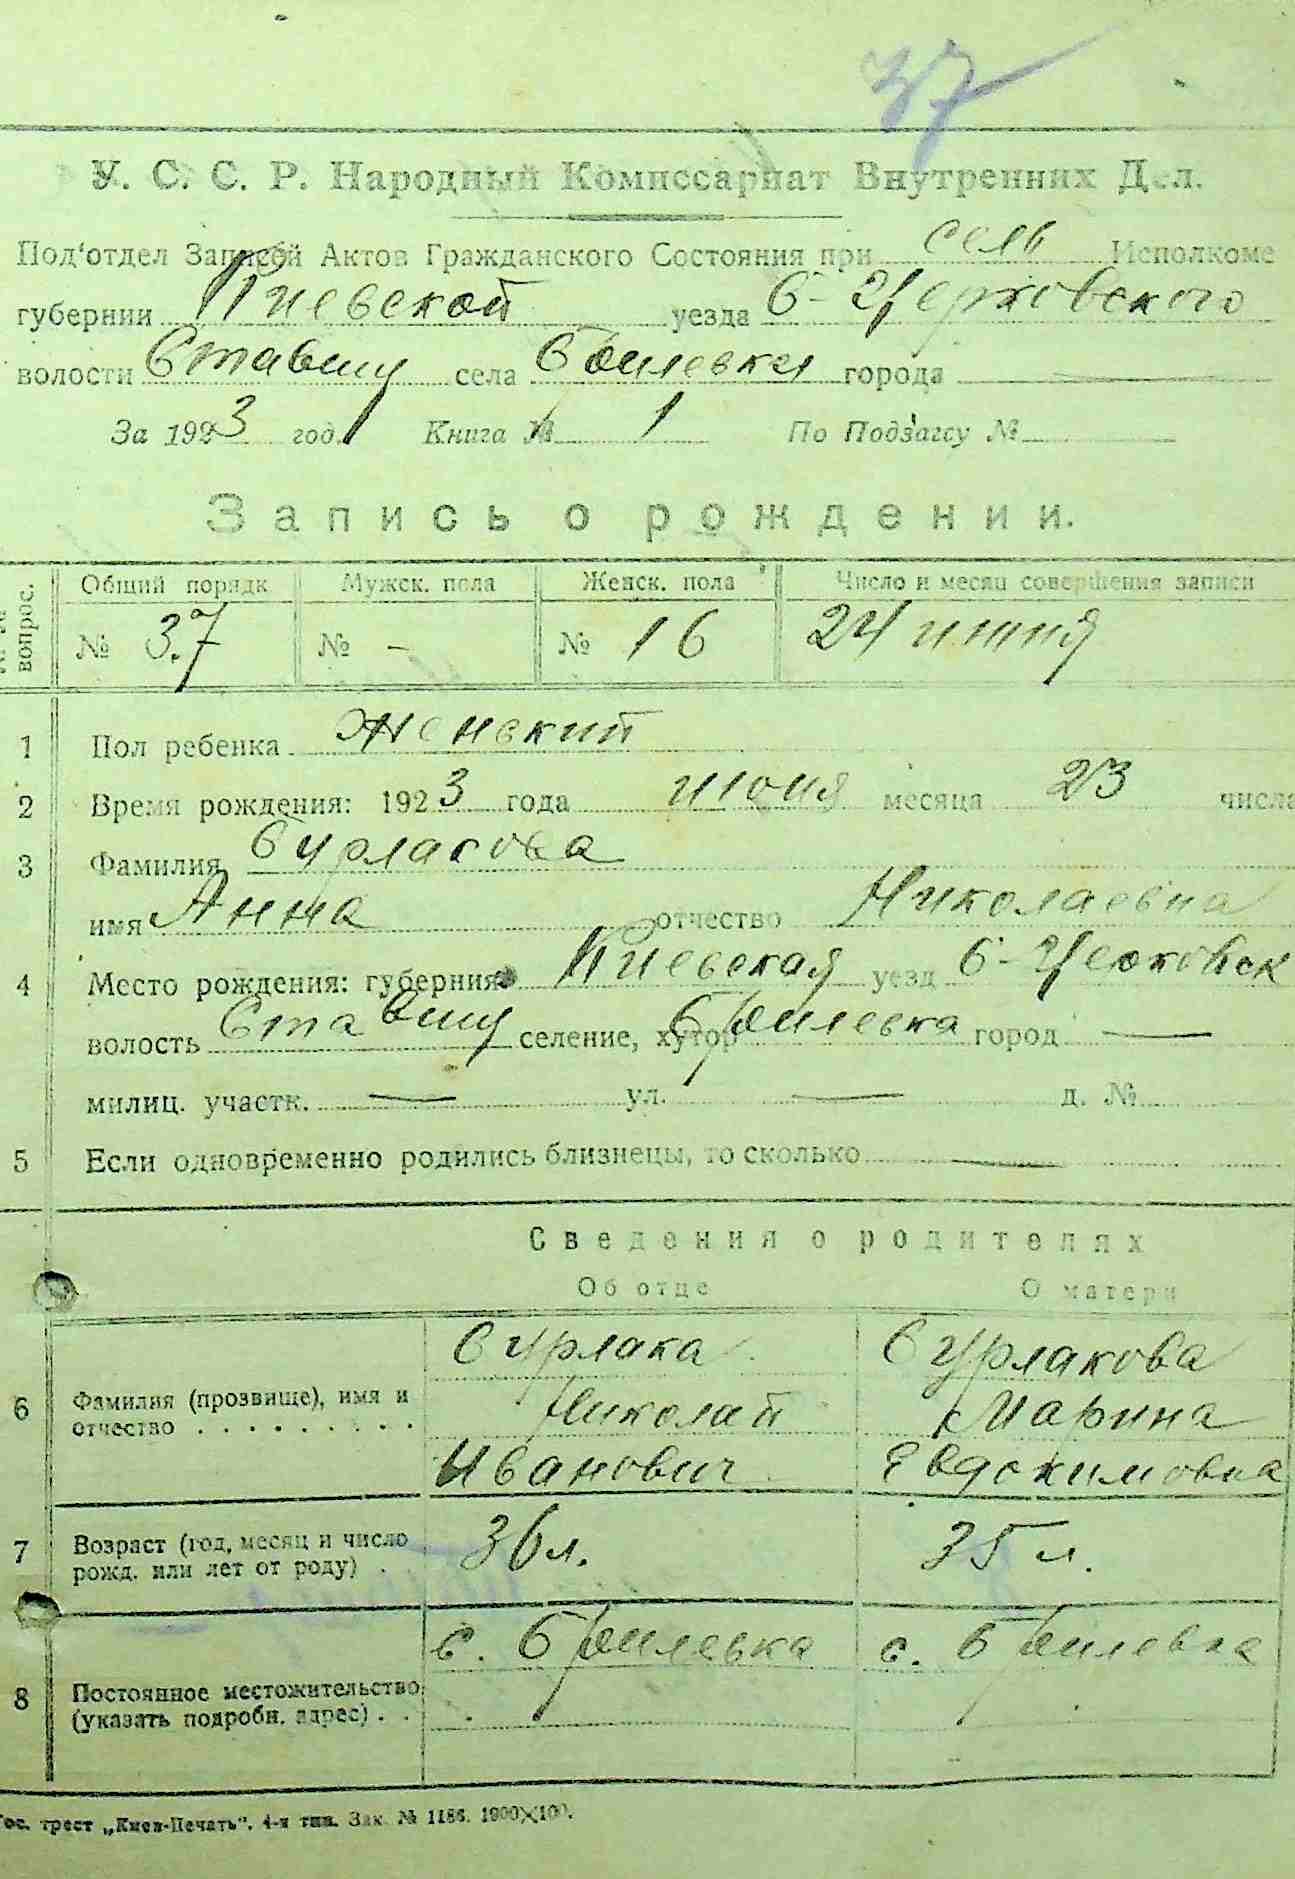 37
У. С. С. Р. Народный Комиссариат Внутренних Дел.
Под'отдел Записей Актов Гражданского Состояния при сель Исполкоме
губернии Киевской уезда Б-Церковского
волости Ставищ села Брилевки города —
За 1923 год. Книга № 1 По Подзагсу №
Запись о рождении.
№№ вопрос. Общий порядк Мужск. пола Женск. пола Число и месяц совершения записи
№ 37 № - № 16 24 июня
1 Пол ребенка Женский
2 Время рождения: 1923 года июня месяца 23 числа
3 Фамилия Бурлакова
имя Анна отчество Николаевна
4 Место рождения: губерния Киевская уезд Б-Церковск
волость Ставищ селение, хутор Брилевка город —
милиц. участк. — ул. — д. №
5 Если одновременно родились близнецы, то сколько —
Сведения о родителях
Об отце О матери
Бурлака Бурлакова
6 Фамилия (прозвище), имя и отчество Николай Марина
Иванович Евдокимовна
7 Возраст (год, месяц и число рожд. или лет от роду) 36 л. 35 л.
с. Брилевка с. Брилевка
8 Постоянное местожительство (указать подробн. адрес)
Гос. трест „Киев-Печать". 4-я тип. Зак. № 1186. 1900×100.